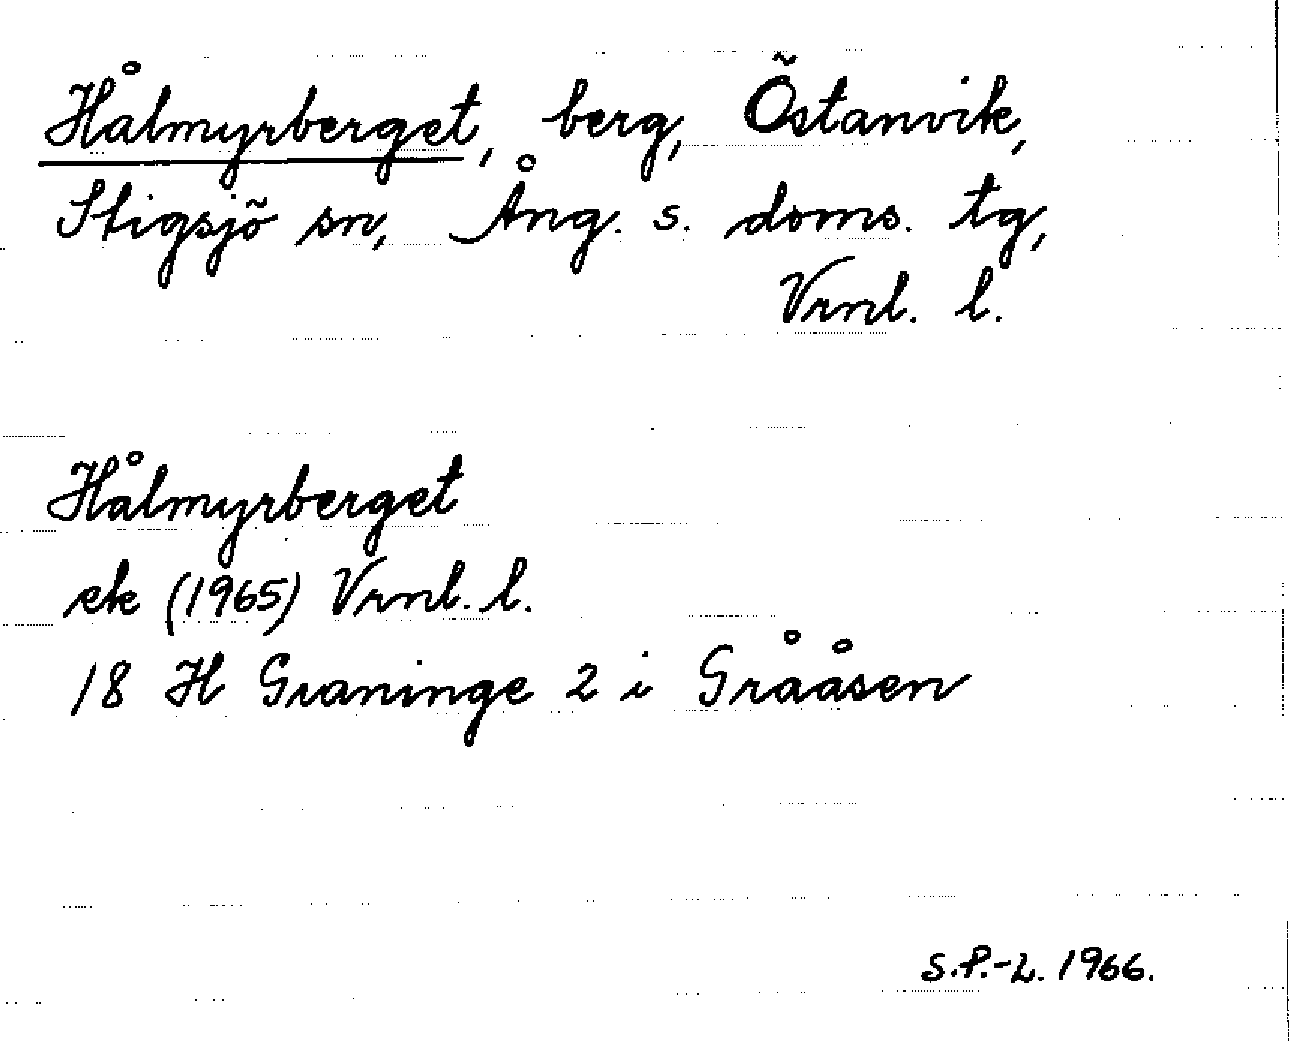 Hålmyrberget, berg, Östanvik,
Stigsjö sn, Ång. s. doms. tg,
Vrnl. l.
Hålmyrberget
ek (1965) Vrnl. l.
18 H Graninge 2 i Grååsen
S.P.-L. 1966.